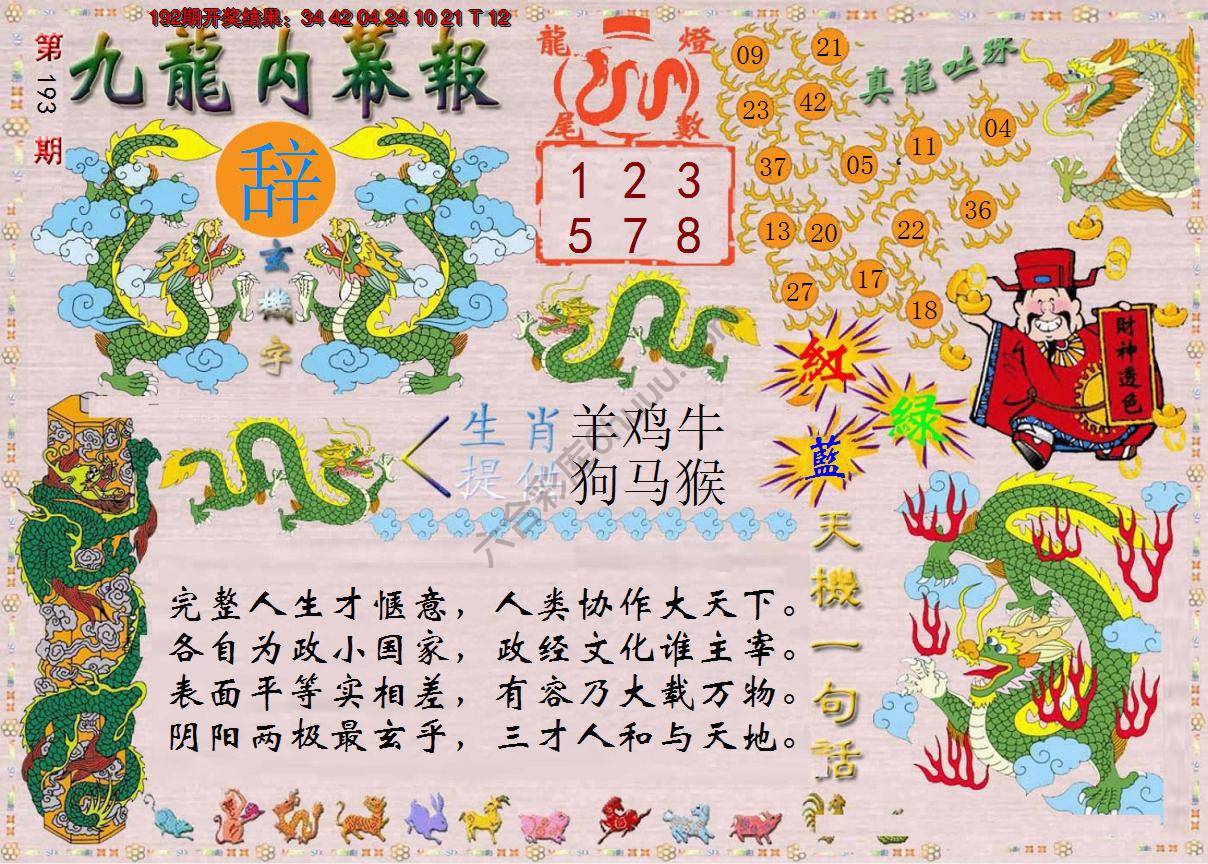 192期开奖结果：34 42 04 24 10 21 T 12
第193期
九龍内幕報
辞
玄機字
龍燈
尾數
1 2 3
5 7 8
真龍吐珠
09 21
23 42
37 05 11 04
13 20 22 36
27 17 18
財神透色
紅
綠
藍
生肖 羊鸡牛
提供 狗马猴
六合彩库
天機一句話
完整人生才惬意，人类协作大天下。
各自为政小国家，政经文化谁主宰。
表面平等实相差，有容乃大载万物。
阴阳两极最玄乎，三才人和与天地。